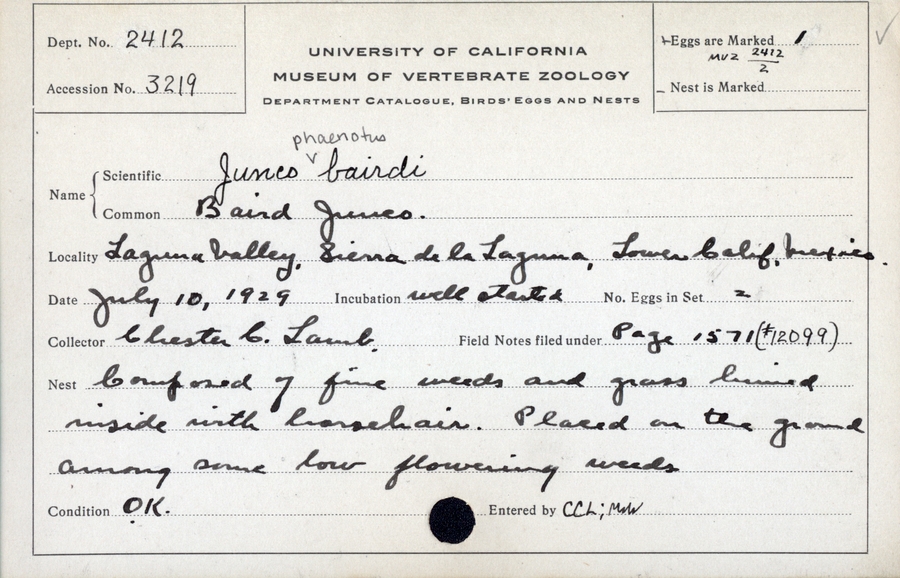 Dept. No. 2412
Accession No. 3219
UNIVERSITY OF CALIFORNIA
MUSEUM OF VERTEBRATE ZOOLOGY
DEPARTMENT CATALOGUE, BIRDS' EGGS AND NESTS
Eggs are Marked 1
MVZ 2412/2
Nest is Marked
phaenotus
Name Scientific Junco bairdi
Common Baird Junco.
Locality Laguna Valley, Sierra de la Laguna, Lower Calif, Mexico.
Date July 10, 1929 Incubation well started No. Eggs in Set 2
Collector Chester C. Lamb. Field Notes filed under Page 1571 (#12099)
Nest Composed of fine weeds and grass lined
inside with horsehair. Placed on the ground
among some low flowering weeds
Condition OK. Entered by CCL;